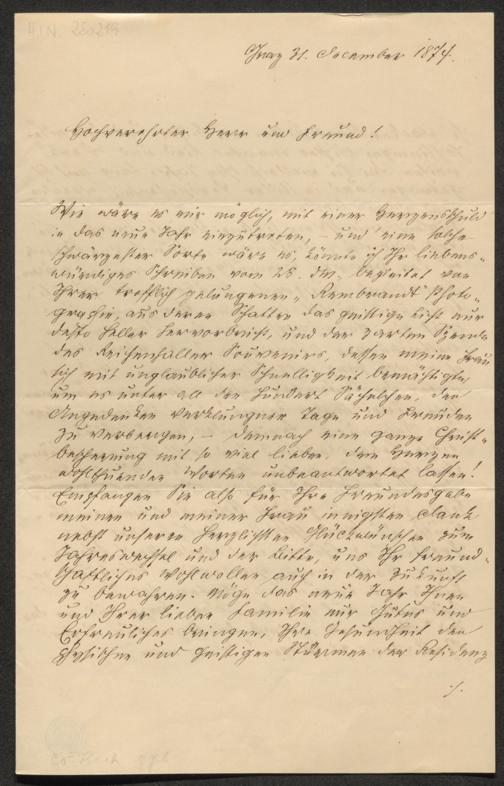 H.I.N. 250219
Graz 31. December 1874.
Hochverehrter Herr und Freund!
Wie wäre es mir möglich, mit einer Herzensschuld
in das neue Jahr einzutreten, – und eine solche
schwärzester Sorte wäre es, könnte ich Ihr liebens-
würdiges Schreiben vom 28. dM. begleitet von
Ihrer trefflich gelungenen „Rembrandt" Photo-
grafie, aus deren Schatten das geistige Licht nur
desto heller hervorbricht, und der zarten Spende
des Reichenhaller Souvenirs, dessen meine Frau
sich mit unglaublicher Schnelligkeit bemächtigte,
um es unter all die hundert Sächelchen, den
Angedenken verklungner Tage und Freuden
zu verbergen, – demnach eine ganze Christ-
bescherung mit so viel lieben, dem Herzen
wohlthuenden Worten unbeantwortet lassen!
Empfangen Sie also für Ihre Freundesgabe
meinen und meiner Frau innigsten Dank
nebst unseren herzlichsten Glückwünschen zum
Jahreswechsel und der Bitte, uns Ihr freund-
schaftliches Wohlwollen auch in der Zukunft
zu bewahren. Möge das neue Jahr Ihnen
und Ihrer lieben Familie nur Gutes und
Erfreuliches bringen, Ihre Gesundheit den
physischen und geistigen Stürmen der Residenz
./.